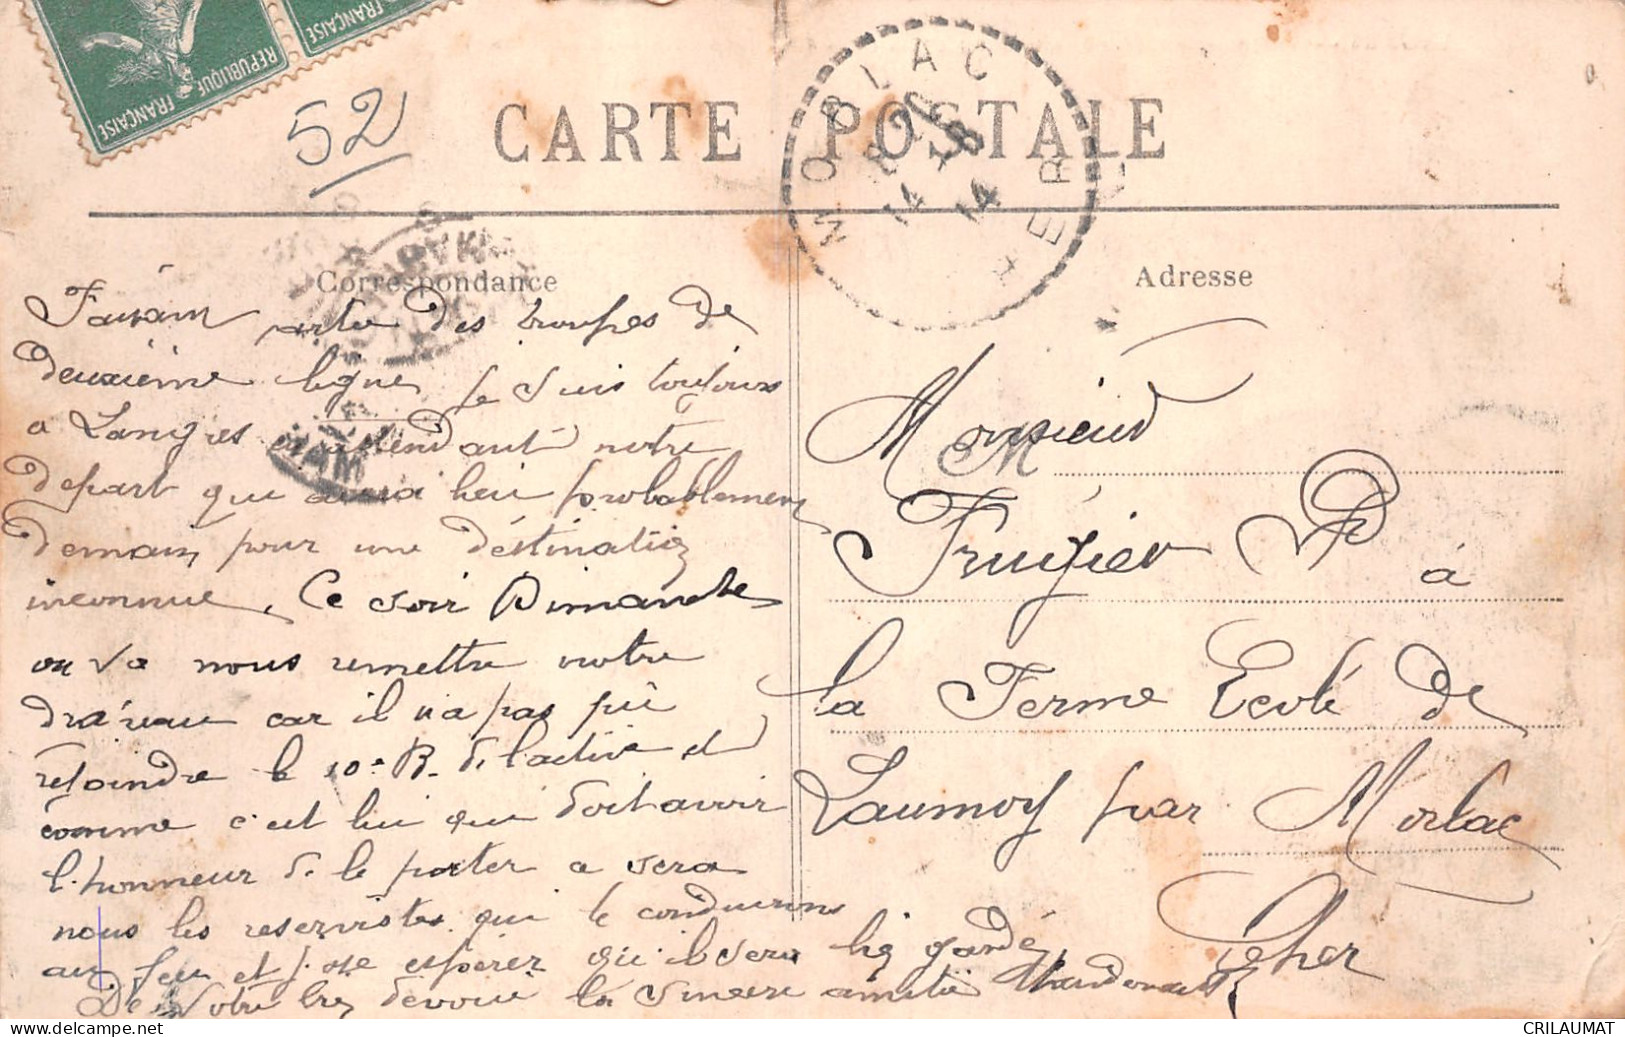 REPUBLIQUE FRANÇAISE
FRANÇAISE
52
CARTE POSTALE
MORLAC
CHER
14 14
Correspondance
Adresse
Faisant partie des troupes de
deuxième ligne je suis toujours
a Langres en attendant notre
depart qui aura lieu probablement
demain pour une déstination
inconnue. Ce soir Dimanche
on va nous remettre notre
drapeau car il n'a pas pû
rejoindre le 10e B. de l'active et
comme c'est lui qui doit avoir
l'honneur de le porter ce sera
nous les reservistes qui le conduirons
au feu et j'ose espérer qu'il sera bien gardé
De Votre bien devoué la sincere amitié
Monsieur
M
Frugier P à
la Ferme Ecole de
Laumoy par Morlac
Cher
CRILAUMAT